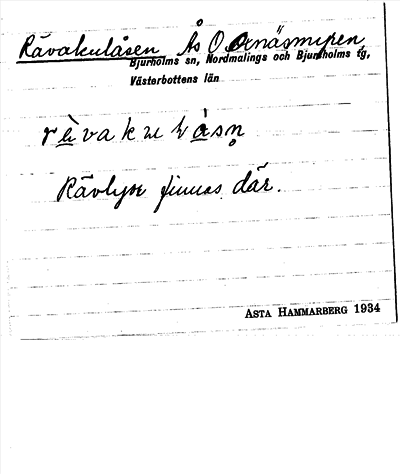 Rävakulåsen Ås O Ornäsmipen,
Bjurholms sn, Nordmalings och Bjurholms tg,
Västerbottens län
Rävlyor finnas där.
ASTA HAMMARBERG 1934